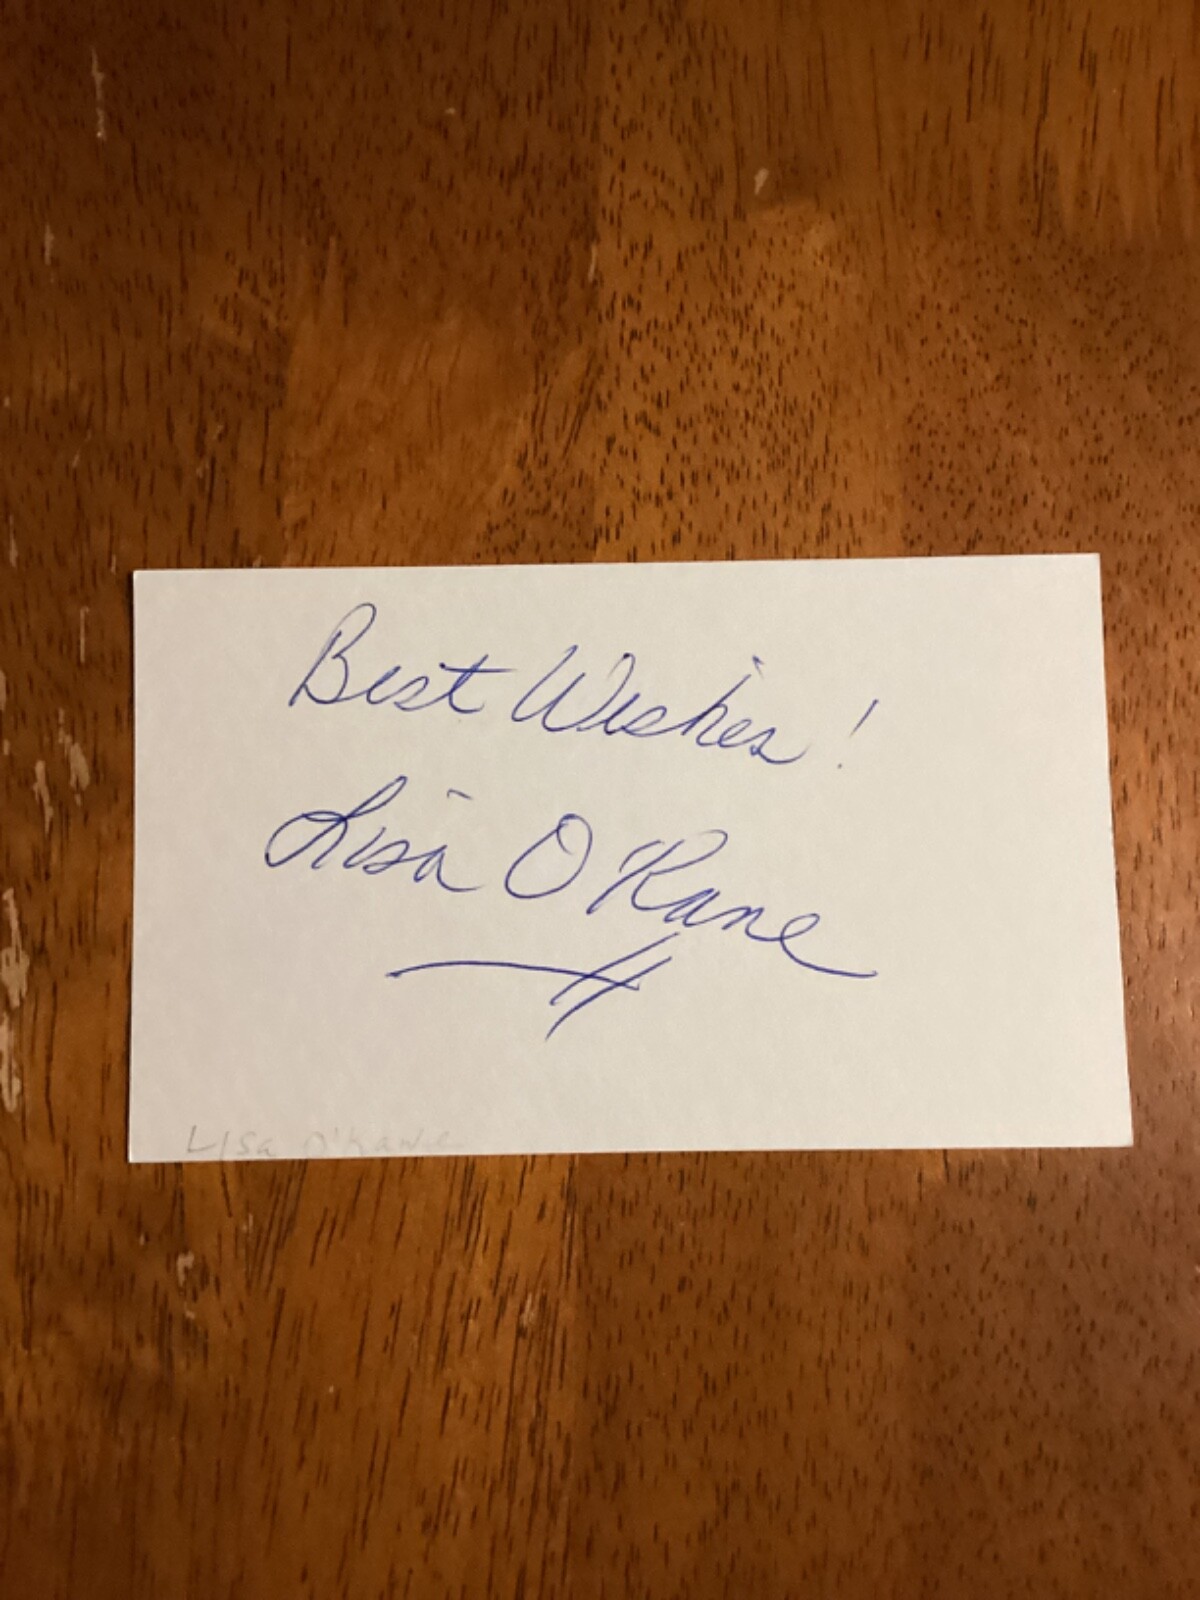 Best Wishes!
Lisa O'Kane
Lisa O'Kane